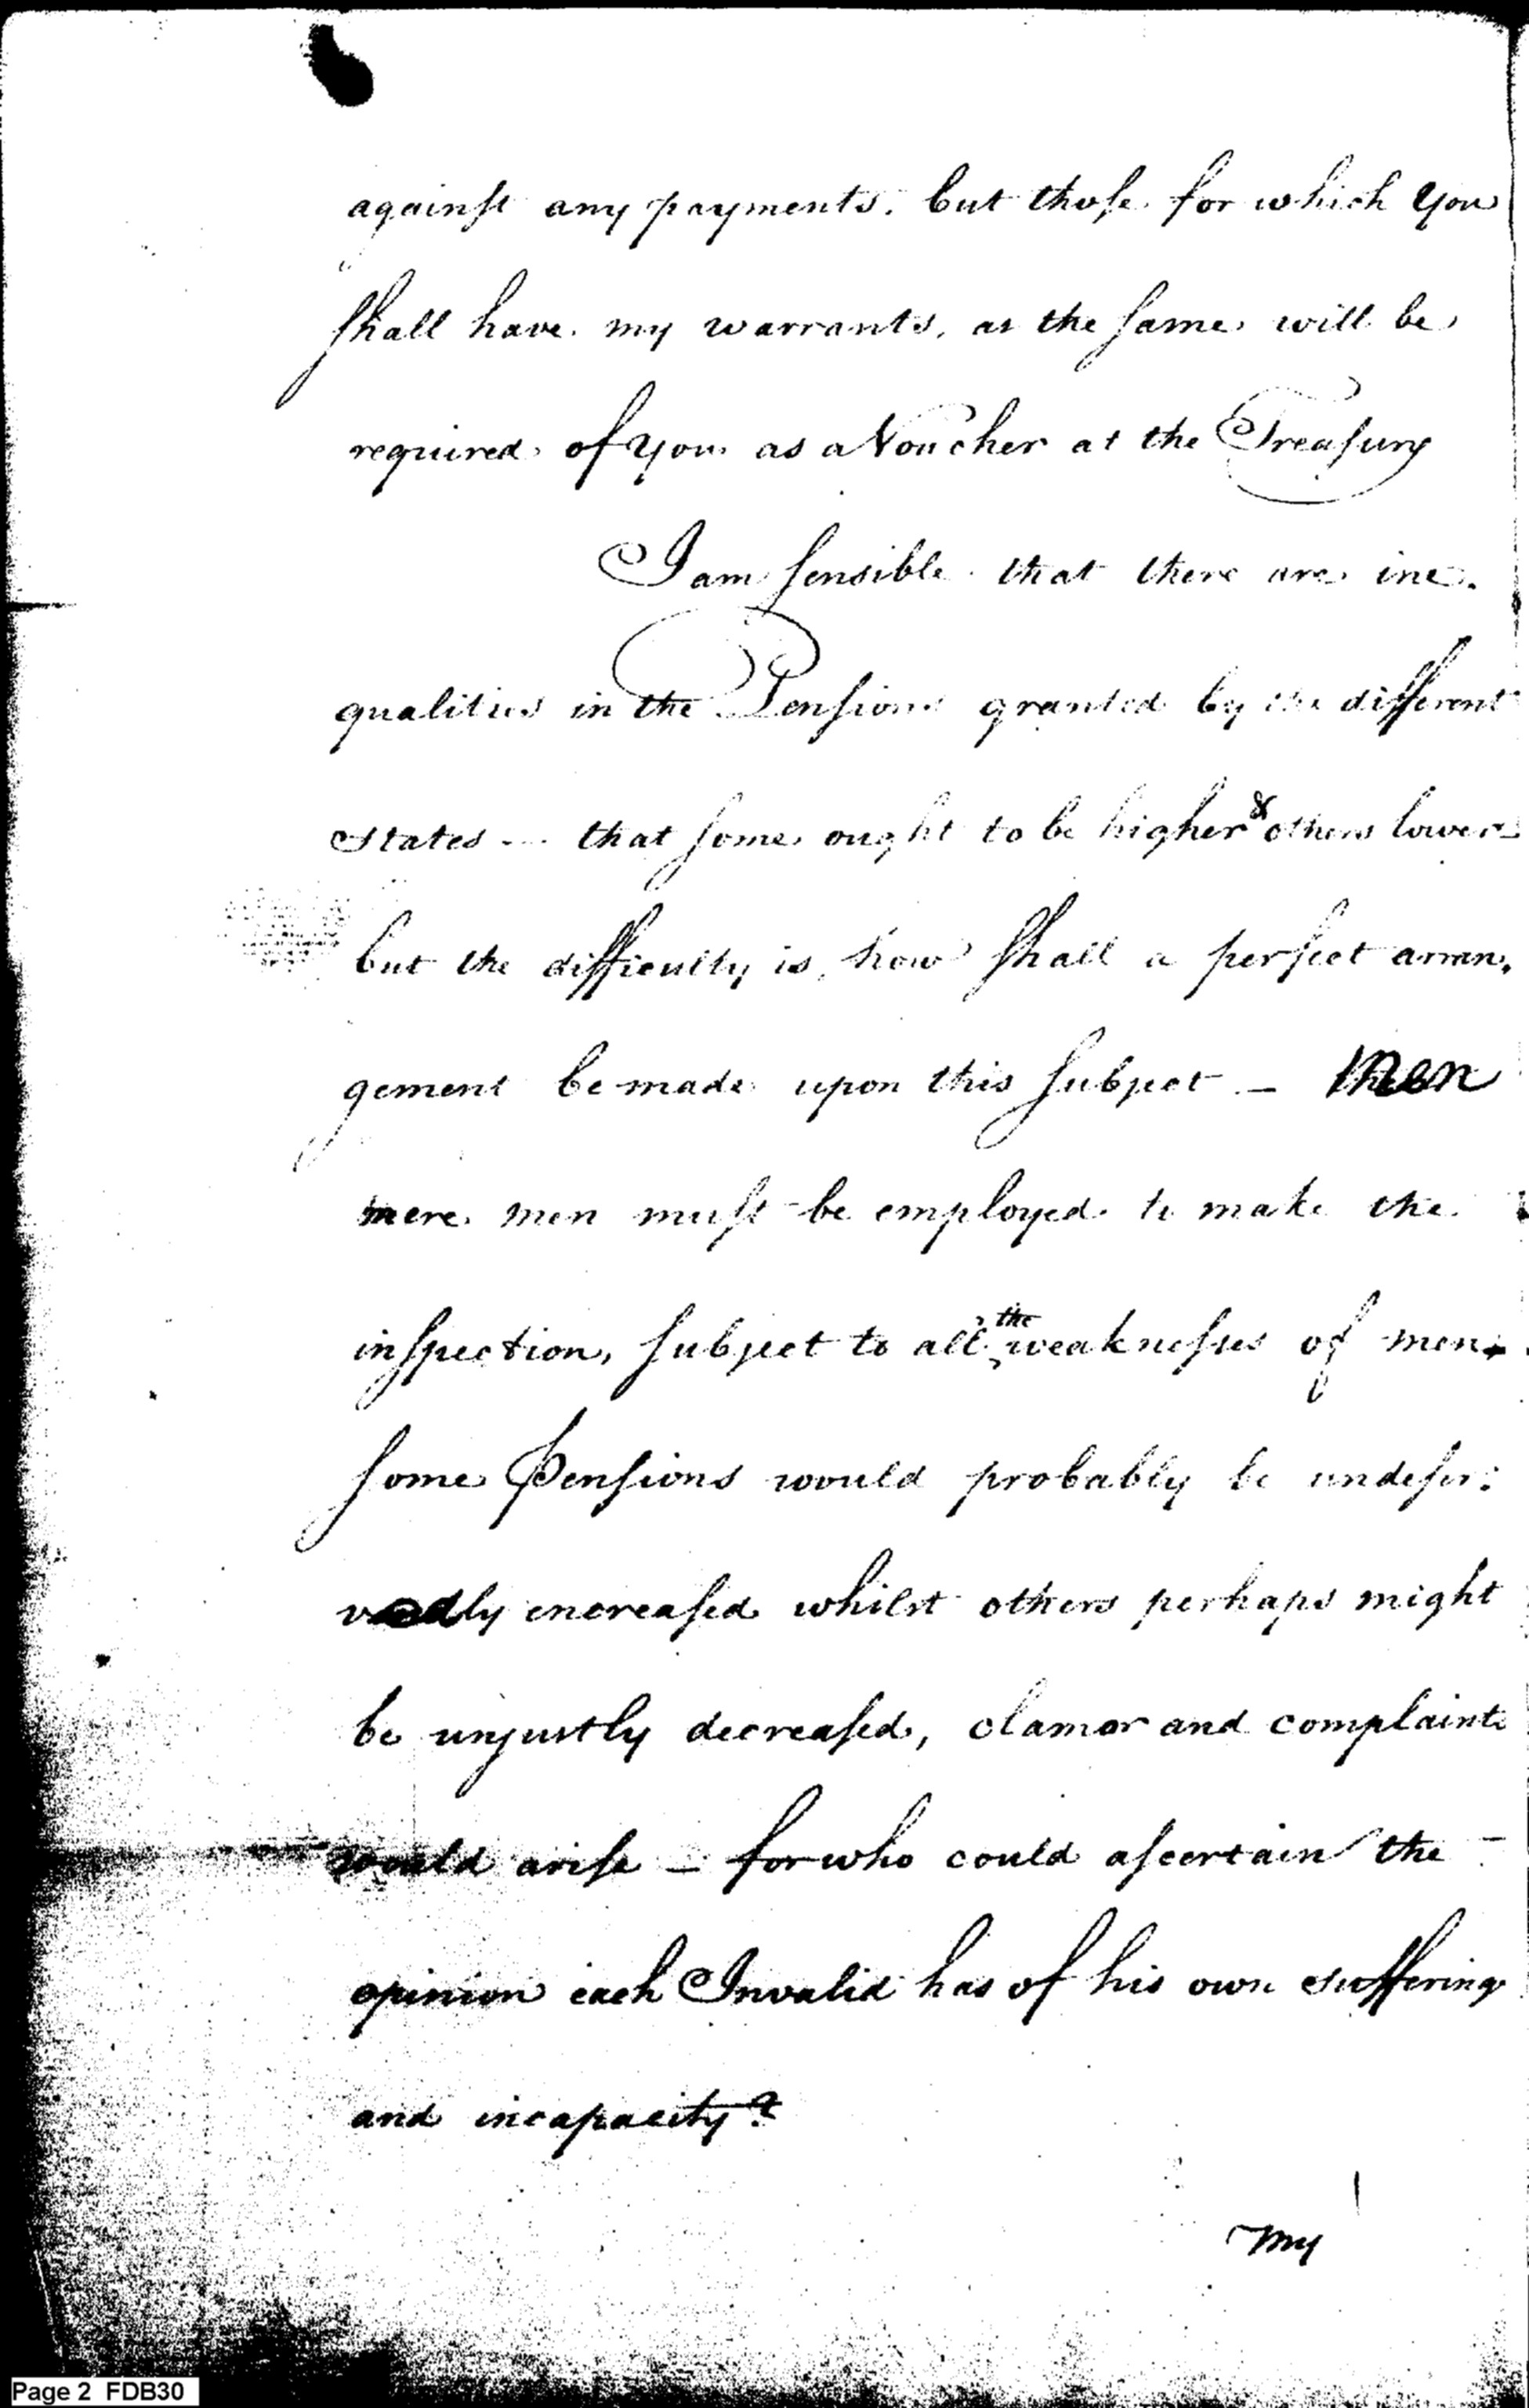 against any payments. but those for which you
shall have my warrants, as the same will be
required of you as a Voucher at the Treasury
I am sensible that there are ine-
qualities in the Pensions granted by the different
States - that some ought to be higher & others lower -
but the difficulty is, how shall a perfect arran-
gement be made upon this subject - Men
mere men must be employed to make the
inspection, subject to all the weaknesses of men.
some Pensions would probably be undeser:
vedly encreased whilst others perhaps might
be unjustly decreased, clamor and complaints
would arise - for who could ascertain the
opinion each Invalid has of his own suffering
and incapacity?
My
Page 2 FDB30